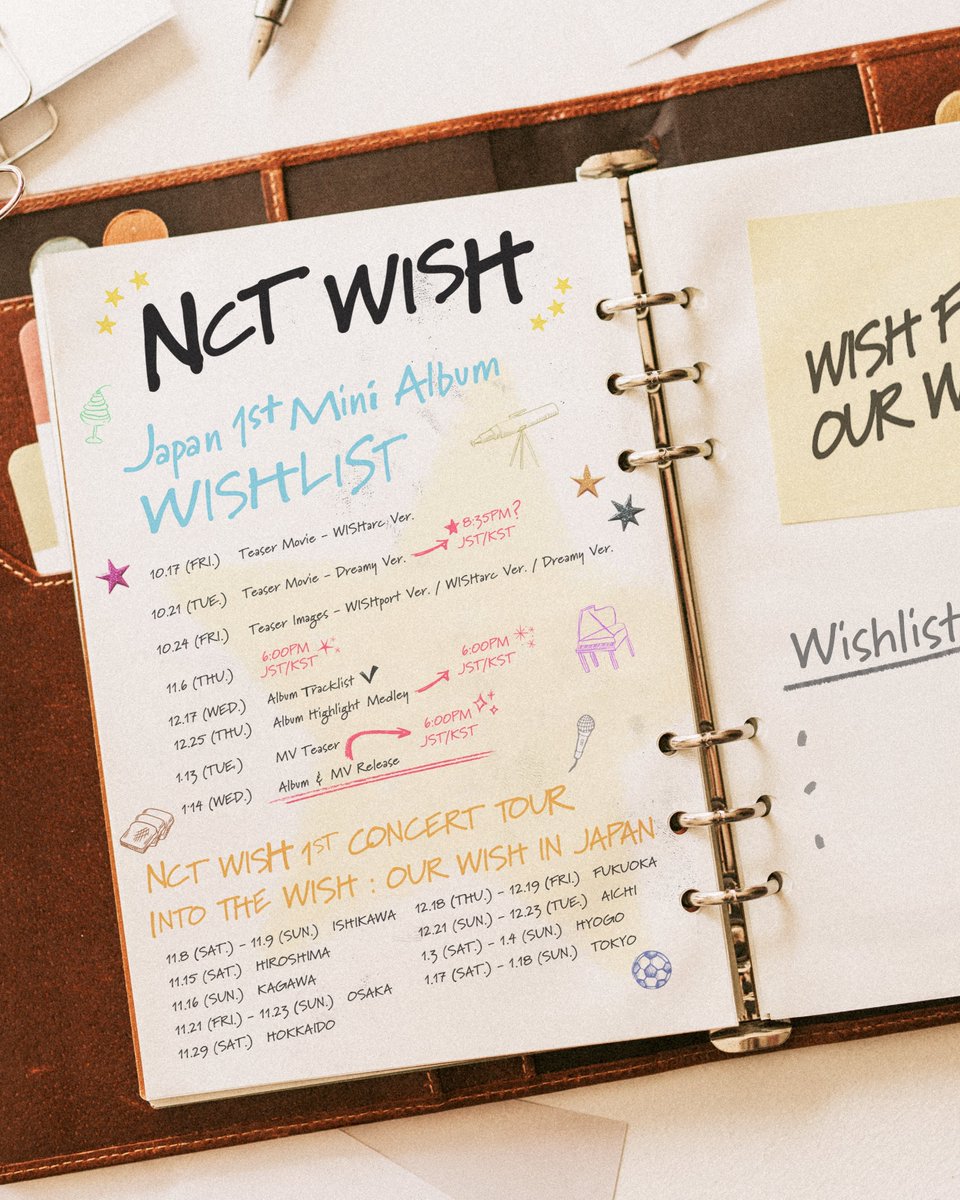 NCT WISH
Japan 1st Mini Album
WISHLIST
10.17 (FRI.) Teaser Movie – WISHarc Ver.
10.21 (TUE.) Teaser Movie – Dreamy Ver. 8:35PM? JST/KST
10.24 (FRI.) Teaser Images – WISHport Ver. / WISHarc Ver. / Dreamy Ver.
11.6 (THU.) 6:00PM JST/KST
12.17 (WED.) Album Tracklist
12.25 (THU.) Album Highlight Medley 6:00PM JST/KST
1.13 (TUE.) MV Teaser 6:00PM JST/KST
1.14 (WED.) Album & MV Release
NCT WISH 1ST CONCERT TOUR
INTO THE WISH : OUR WISH IN JAPAN
11.8 (SAT.) – 11.9 (SUN.) ISHIKAWA
11.15 (SAT.) HIROSHIMA
11.16 (SUN.) KAGAWA
11.21 (FRI.) – 11.23 (SUN.) OSAKA
11.29 (SAT.) HOKKAIDO
12.18 (THU.) – 12.19 (FRI.) FUKUOKA
12.21 (SUN.) – 12.23 (TUE.) AICHI
1.3 (SAT.) – 1.4 (SUN.) HYOGO
1.17 (SAT.) – 1.18 (SUN.) TOKYO
WISH F
OUR W
Wishlist